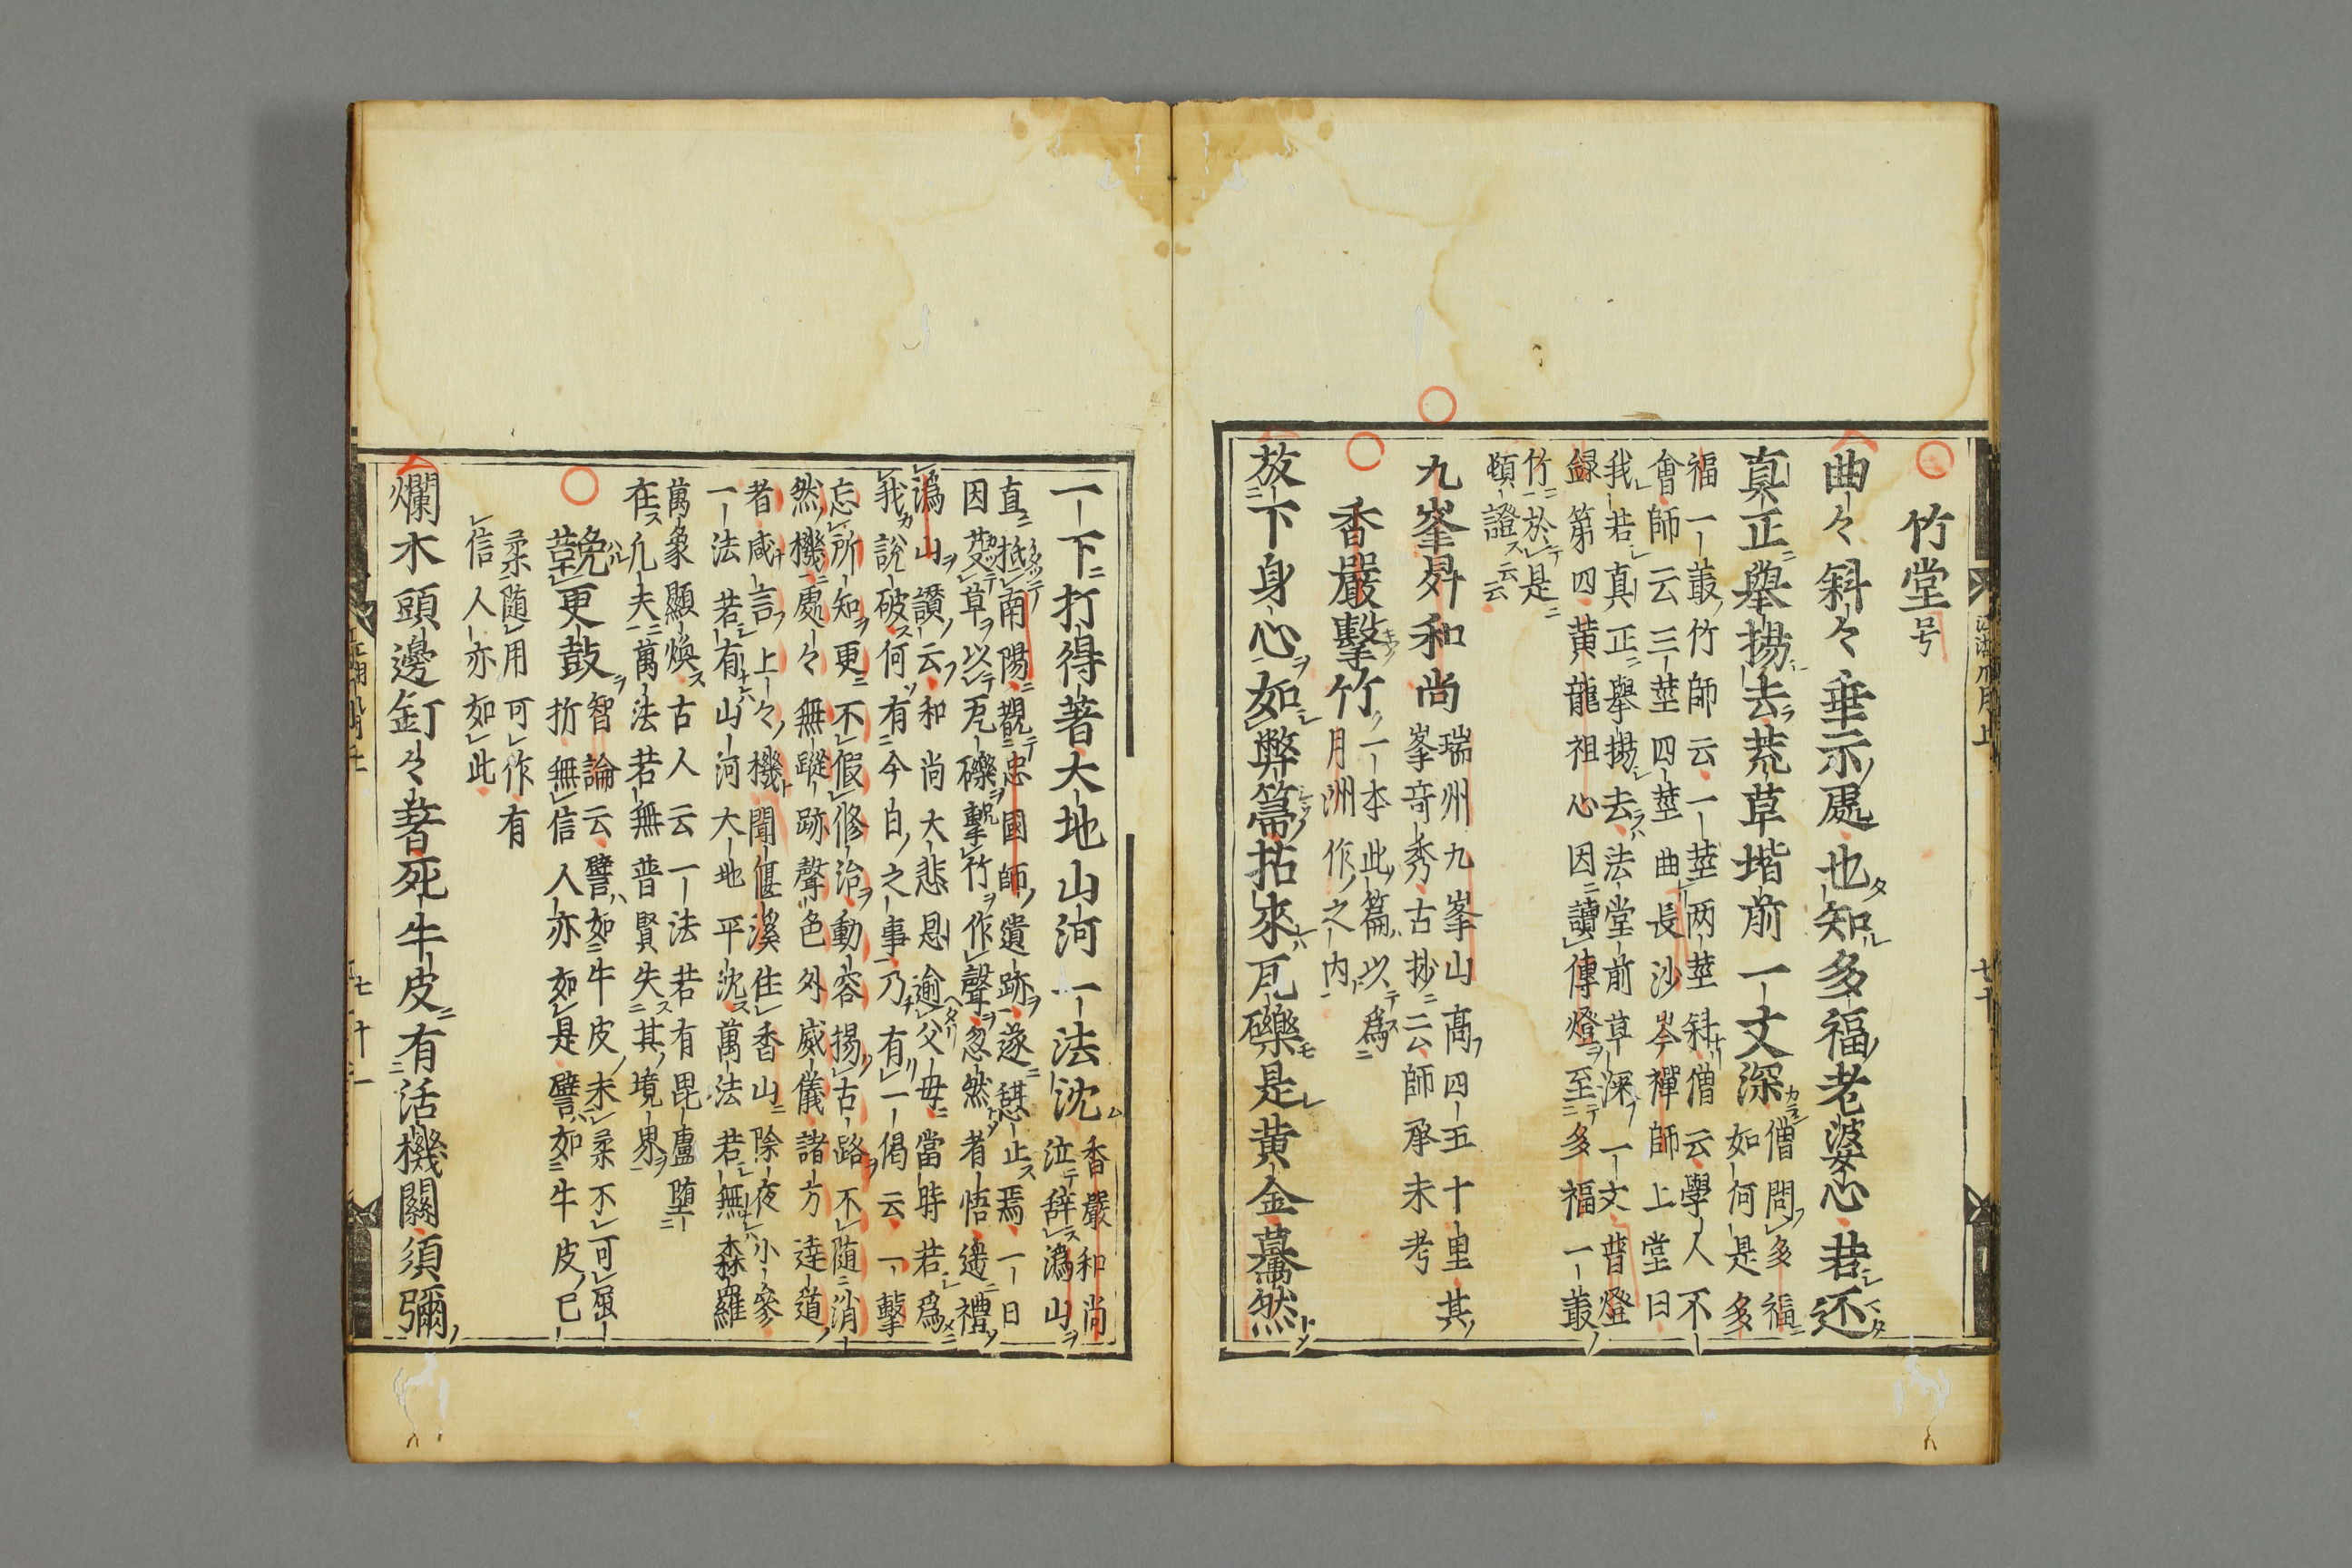 竹堂号
曲々斜々垂示處也知多福老婆心若还
真正舉揚去荒草堦前一丈深 僧問多福
如何是多
福一叢竹師云一莖两莖斜僧云學人不
會師云三莖四莖曲長沙岑禪師上堂曰
我若真正舉揚去法堂前草深一丈普燈
録第四黄龍祖心因讀傳燈至多福一叢
竹於是
頓證云云
九峯昇和尚 瑞州九峯山高四五十里其
峯竒秀古抄云師承未考
香嚴擊竹 一本此篇以為
月洲作之内
放下身心如弊箒拈來瓦礫是黄金驀然
一下打得著大地山河一法沈 香嚴和尚
泣辞溈山
直抵南陽覩忠國師遺跡遂憇止焉一日
因芟草以瓦礫擊竹作聲忽然省悟遙禮
溈山讃云和尚大悲恩逾父毋當時若為
我說破何有今日之事乃有一偈云一擊
忘所知更不假修治動容揚古路不随消
然機處々無蹤跡聲色外威儀諸方達道
者咸言上々機聞偃溪住香山除夜小參
一法若有山河大地平沈萬法若無森羅
萬象顯煥古人云一法若有毘盧墮
在凢夫萬法若無普賢失其境界
鞔更鼓 智論云譬如牛皮未柔不可屈
折無信人亦如是譬如牛皮已
柔随用可作有
信人亦如此
爛木頭邊釘々著死牛皮有活機關須彌
七十
七十一